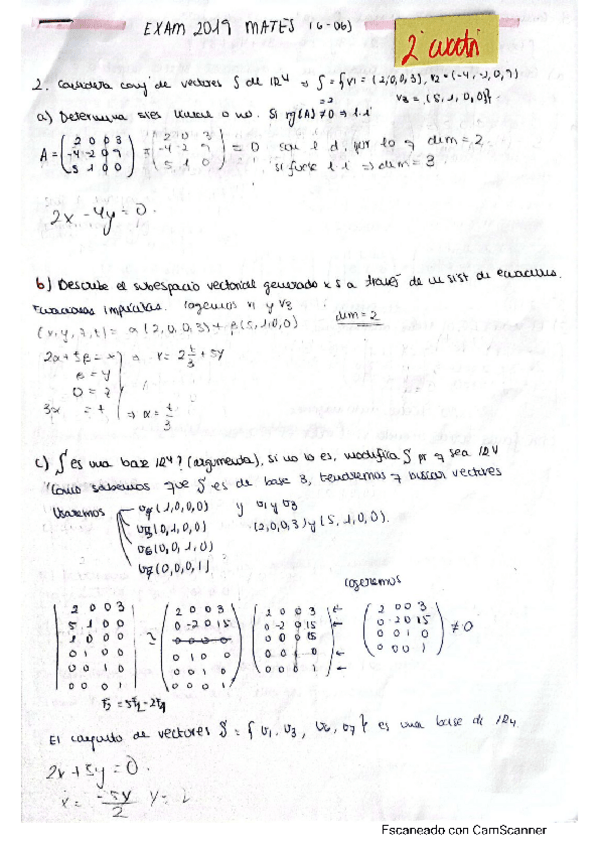 EXAM 2019 MATES (6-06)
2º cuatri
2. Considera conj de vectores S de IR4 => S = {v1 = (2,0,0,3), v2 = (-4,-2,0,9)
v3 = (5,1,0,0)}.
a) Determina si es lineal o no. Si rg(A) ≠ 0 => l.i
A = ( 2 0 0 3 ) = ( 2 0 3 ) = 0 son l d, por lo dim = 2.
( -4 -2 0 9 ) ( -4 -2 9 ) si fuese l.i => dim = 3
( 5 1 0 0 ) ( 5 1 0 )
2x - 4y = 0.
b) Describe el subespacio vectorial generado x S a través de un sist de ecuaciones.
Ecuaciones implícitas. Cogemos v1 y v3
(x, y, z, t) = α (2,0,0,3) + β (5,1,0,0) dim = 2
2α + 5β = x => x = 2 t/3 + 5y
β = y
0 = z
3α = t => α = t/3
c) S es una base IR4? (argumenta), si no lo es, modifica S pr q sea IR4
Como sabemos que S es de base 3, tendremos q buscar vectores
Usaremos v4 (1,0,0,0) y v1 y v3
v5 (0,1,0,0) (2,0,0,3) y (5,1,0,0).
v6 (0,0,1,0)
v7 (0,0,0,1)
cogeremos
2 0 0 3 2 0 0 3 2 0 0 3 2 0 0 3
5 1 0 0 0 -2 0 15 0 -2 0 15 0 -2 0 15
1 0 0 0 0 0 0 0 0 0 15 0 0 1 0 ≠ 0
0 1 0 0 0 1 0 0 0 0 0 0 0 0 1
0 0 1 0 0 0 1 0 0 0 0 1
0 0 0 1 0 0 0 1
El conjunto de vectores S = { v1, v3, v6, v7 } es una base de IR4.
2x + 5y = 0.
x = -5y/2
Escaneado con CamScanner